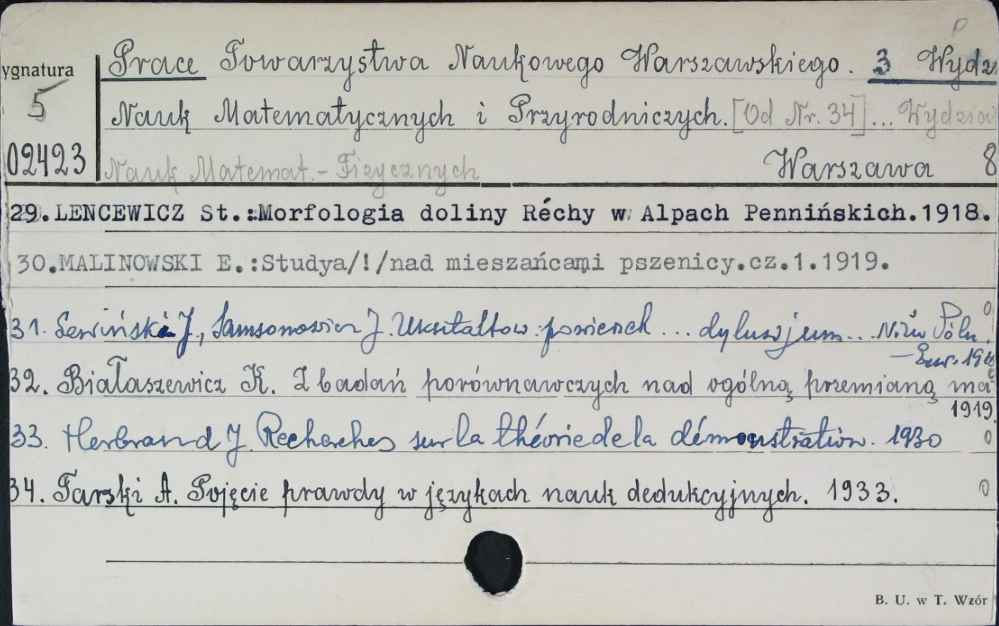 Prace Towarzystwa Naukowego Warszawskiego. 3 Wydz
ygnatura
5
Nauk Matematycznych i Przyrodniczych. [Od Nr. 34]... Wydział
02423
Nauk Matemat.-Fizycznych
Warszawa 8
29.LENCEWICZ St.:Morfologia doliny Réchy w Alpach Pennińskich.1918.
30.MALINOWSKI E.:Studya/!/nad mieszańcami pszenicy.cz.1.1919.
31. Lewiński J., Samsonowicz J. Ukształtow. powierzch... dyluwjum... Niżu Póln.
32. Białaszewicz K. Z badań porównawczych nad ogólną przemianą ma
1919
33. Herbrand J. Recherches sur la théorie de la démonstration. 1930 0
34. Tarski A. Pojęcie prawdy w językach nauk dedukcyjnych. 1933. 0
B. U. w T. Wzór